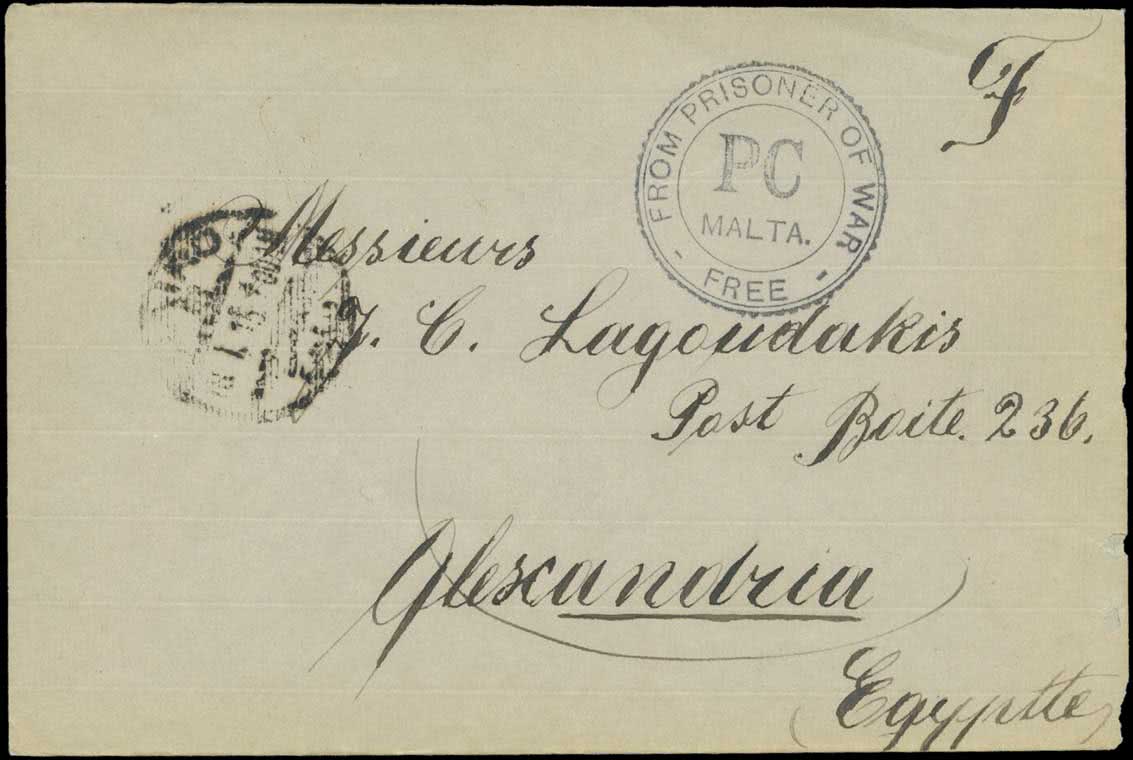 F
FROM PRISONER OF WAR
PC
MALTA.
- FREE -
Messieurs
J. C. Lagoudakis
Post Boite. 236.
Alexandria
(Egyptte)